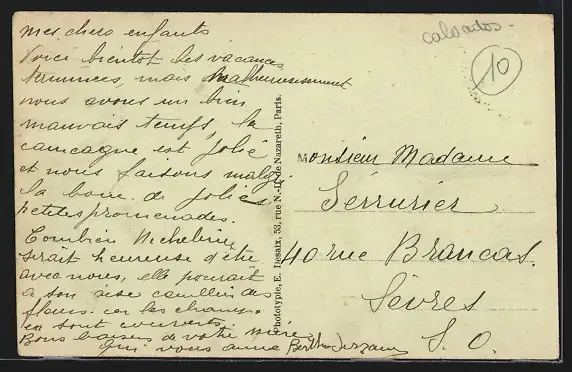 mes chers enfants
Voici bientôt les vacances
terminées, mais malheureusement
nous avons un bien
mauvais temps, la
campagne est jolie
et nous faisons malgré
la boue de jolies
petites promenades.
Combien Micheline
serait heureuse d'être
avec nous, elle pourrait
à son aise cueillir des
fleurs. car les champs
en sont couverts.
Bons baisers de votre mère
qui vous aime Berthe
Phototypie, E. Desaix, 53, rue N.-D. de Nazareth, Paris.
calvados
10
Monsieur Madame
Serrurier
40 rue Brancas.
Sèvres
S. O.